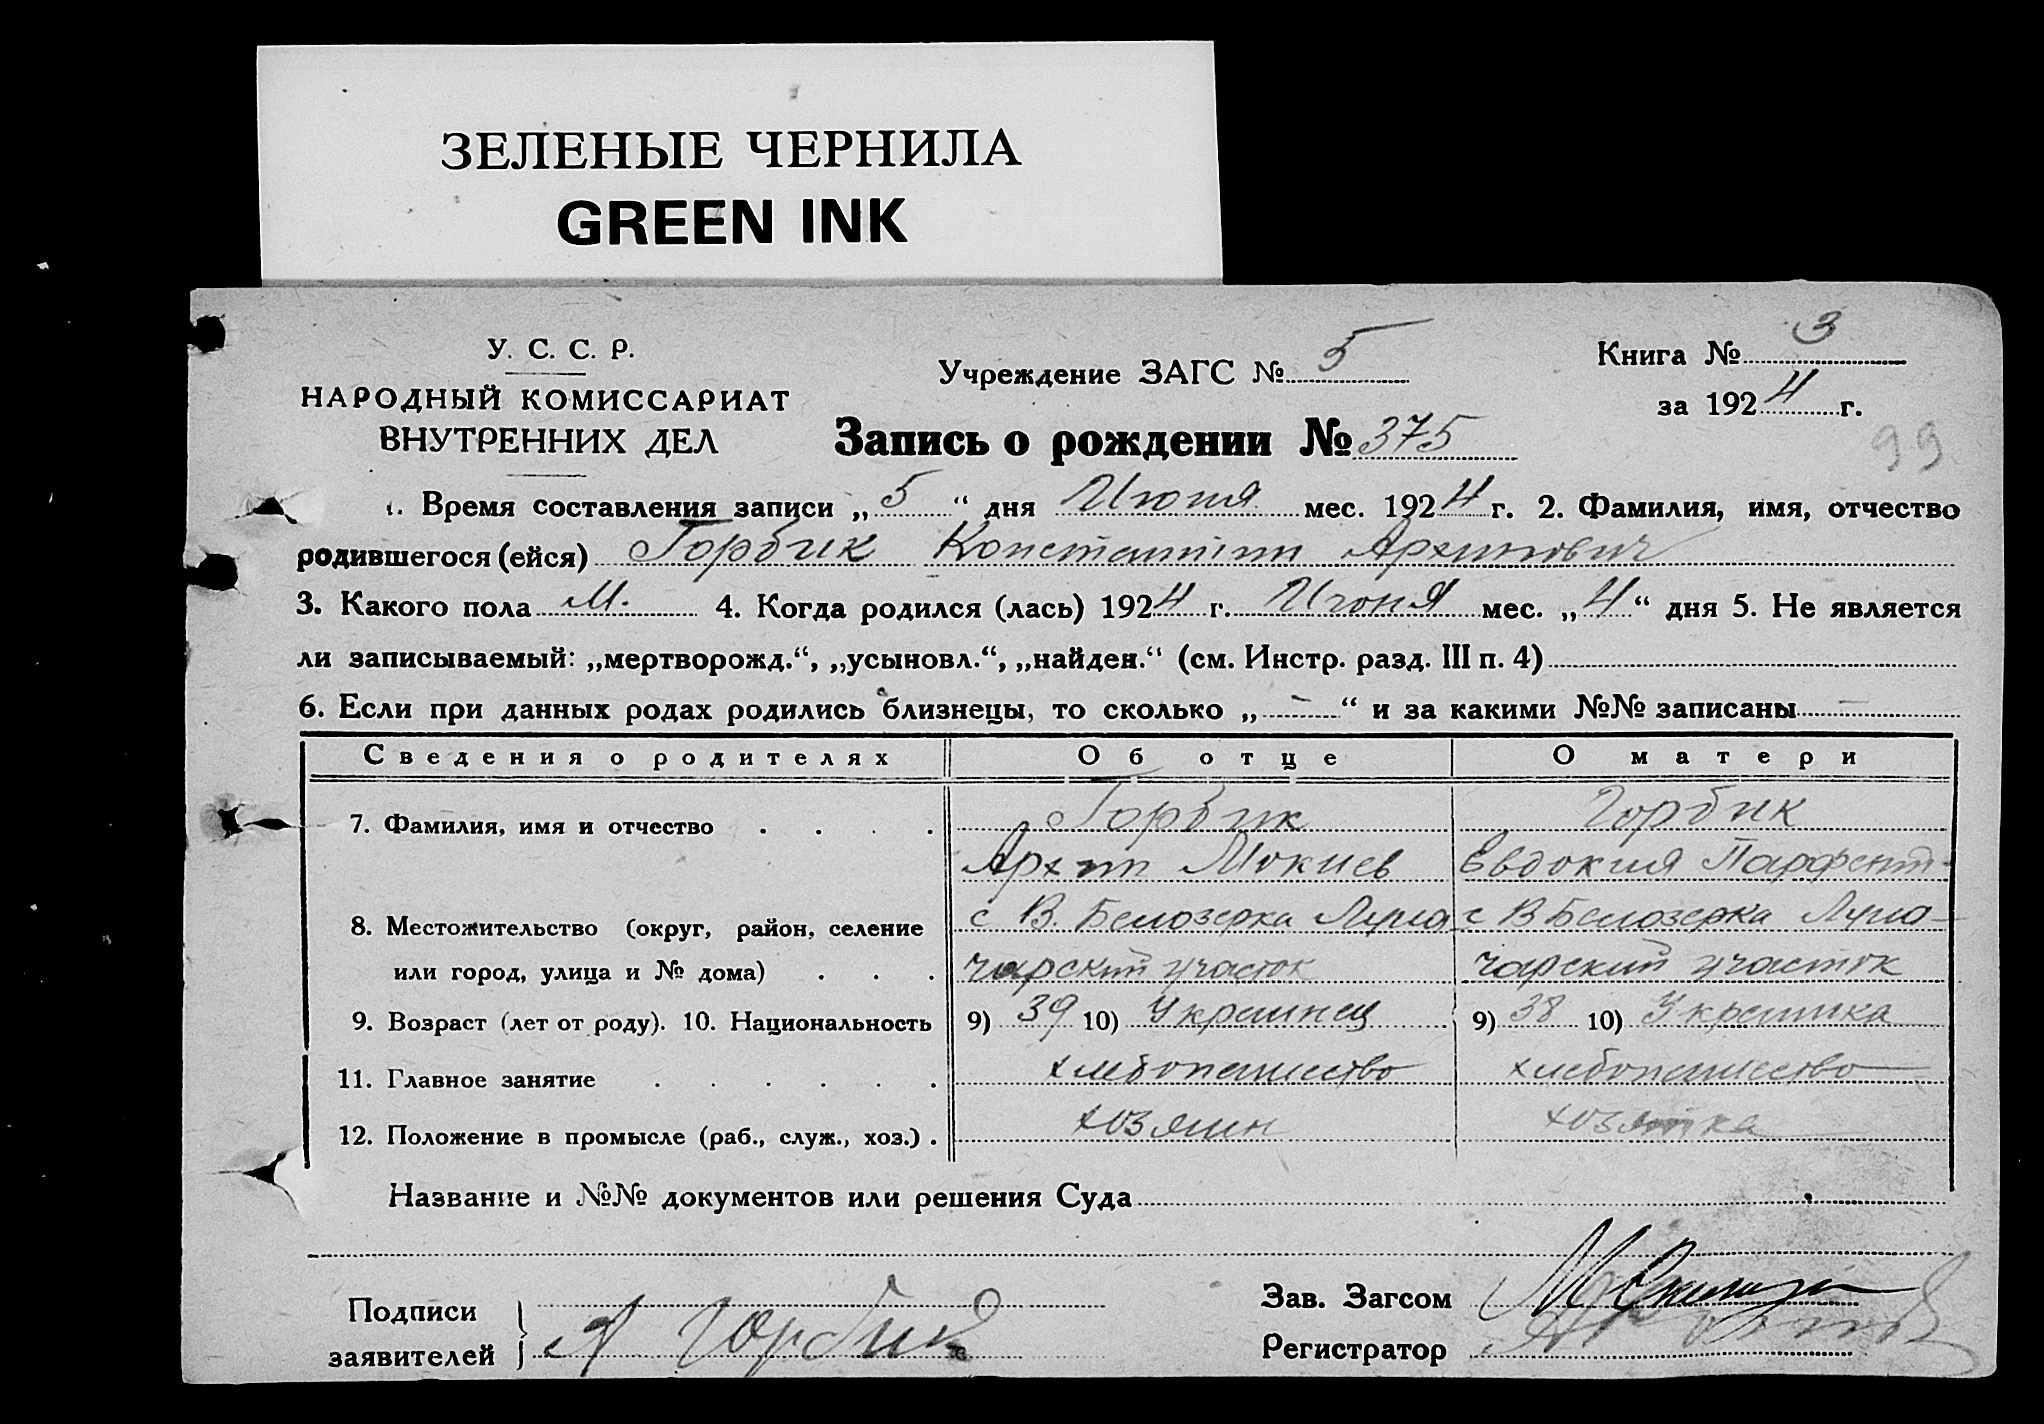 ЗЕЛЕНЫЕ ЧЕРНИЛА
GREEN INK
У. С. С. Р.
НАРОДНЫЙ КОМИССАРИАТ
ВНУТРЕННИХ ДЕЛ
Учреждение ЗАГС № 5
Книга № 3
за 1924 г.
Запись о рождении № 375
99
1. Время составления записи „5“ дня Июня мес. 1924 г. 2. Фамилия, имя, отчество
родившегося (ейся) Горбик Константин Архипович
3. Какого пола М. 4. Когда родился (лась) 1924 г. Июня мес. „4“ дня 5. Не является
ли записываемый: „мертворожд.“, „усыновл.“, „найден.“ (см. Инстр. разд. III п. 4)
6. Если при данных родах родились близнецы, то сколько „ - “ и за какими №№ записаны —
Сведения о родителях Об отце О матери
7. Фамилия, имя и отчество . . . . Горбик Горбик
Архип Мокиев Евдокия Парфент-
8. Местожительство (округ, район, селение с В. Белозерка Луна- с В Белозерка Луна-
или город, улица и № дома) . . . чарский участок чарский участок
9. Возраст (лет от роду). 10. Национальность 9) 39 10) Украинец 9) 38 10) Украинка
11. Главное занятие . . . . . . хлебопашество хлебопашество
12. Положение в промысле (раб., служ., хоз.) . хозяин хозяйка
Название и №№ документов или решения Суда
Подписи
заявителей } А Горбик
Зав. Загсом
Регистратор